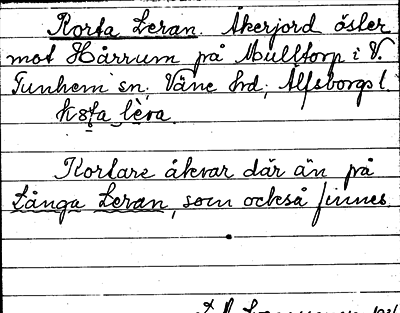 Korta Leran. Åkerjord öster
mot Hårrum på Mulltorp i V.
Tunhem sn, Väne hd, Älfsborgs l.
Kortare åkrar där än på
Långa Leran, som också finnes.